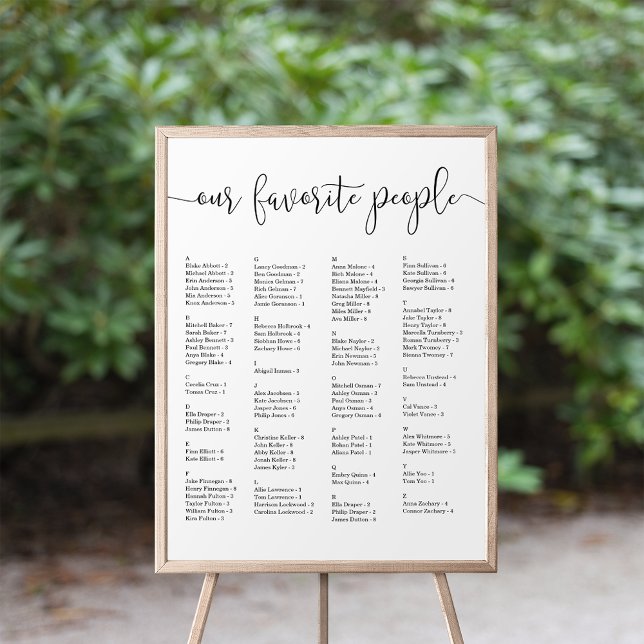 our favorite people
A
Blake Abbott - 2
Michael Abbott - 2
Erin Anderson - 5
John Anderson - 5
Mia Anderson - 5
Knox Anderson - 5
B
Mitchell Baker - 7
Sarah Baker - 7
Ashley Bennett - 3
Paul Bennett - 3
Anya Blake - 4
Gregory Blake - 4
C
Cecelia Cruz - 1
Tomas Cruz - 1
D
Ella Draper - 2
Philip Draper - 2
James Dutton - 8
E
Finn Elliott - 6
Kate Elliott - 6
F
Jake Finnegan - 8
Henry Finnegan - 8
Hannah Fulton - 3
Taylor Fulton - 3
William Fulton - 3
Kira Fulton - 3
G
Lancy Goodman - 2
Ben Goodman - 2
Monica Gelman - 7
Rich Gelman - 7
Alice Goranson - 1
Jamie Goranson - 1
H
Rebecca Holbrook - 4
Sam Holbrook - 4
Siobhan Howe - 6
Zachary Howe - 6
I
Abigail Inman - 3
J
Alex Jacobsen - 5
Kate Jacobsen - 5
Jasper Jones - 6
Philip Jones - 6
K
Christine Keller - 8
John Keller - 8
Abby Keller - 8
Jonah Keller - 8
James Kyler - 3
L
Allie Lawrence - 1
Tom Lawrence - 1
Harrison Lockwood - 2
Carolina Lockwood - 2
M
Anna Malone - 4
Rich Malone - 4
Eliana Malone - 4
Bennett Mayfield - 3
Natasha Miller - 8
Greg Miller - 8
Miles Miller - 8
Ava Miller - 8
N
Blake Naylor - 2
Michael Naylor - 2
Erin Newman - 5
John Newman - 5
O
Mitchell Osman - 7
Ashley Osman - 2
Paul Osman - 3
Anya Osman - 4
Gregory Osman - 4
P
Ashley Patel - 1
Rohan Patel - 1
Aliana Patel - 1
Q
Embry Quinn - 4
Max Quinn - 4
R
Ella Draper - 2
Philip Draper - 2
James Dutton - 8
S
Finn Sullivan - 6
Kate Sullivan - 6
Georgia Sullivan - 6
Sawyer Sullivan - 6
T
Annabel Taylor - 8
Jake Taylor - 8
Henry Taylor - 8
Marcella Turnsberry - 3
Roman Turnsberry - 3
Mark Twomey - 7
Sienna Twomey - 7
U
Rebecca Unstead - 4
Sam Unstead - 4
V
Cal Vance - 3
Violet Vance - 3
W
Alex Whitmore - 5
Kate Whitmore - 5
Jasper Whitmore - 5
Y
Allie Yoo - 1
Tom Yoo - 1
Z
Anna Zachary - 4
Connor Zachary - 4